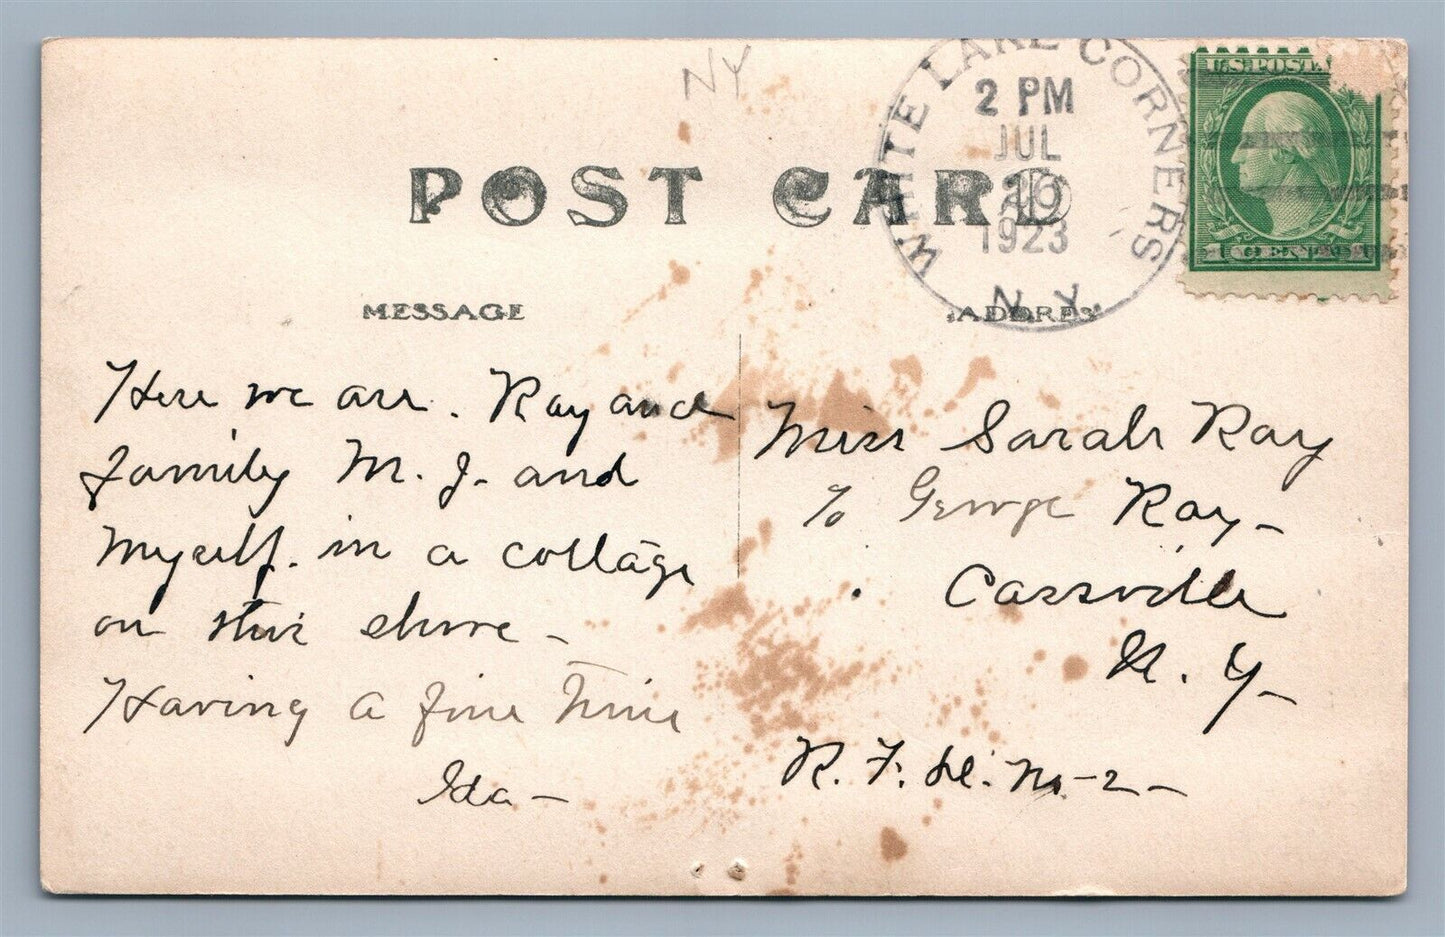 NY
WHITE LAKE CORNERS
2 PM
JUL
20
1923
N.Y.
U.S. POSTA
POST CARD
MESSAGE
ADDRESS
Here we are. Ray and
family M. J. and
Myself. in a cottage
on this shore -
Having a fine time
Ida -
Miss Sarah Ray
℅ George Ray -
Cassville
N. Y -
R. F. D. No - 2 -